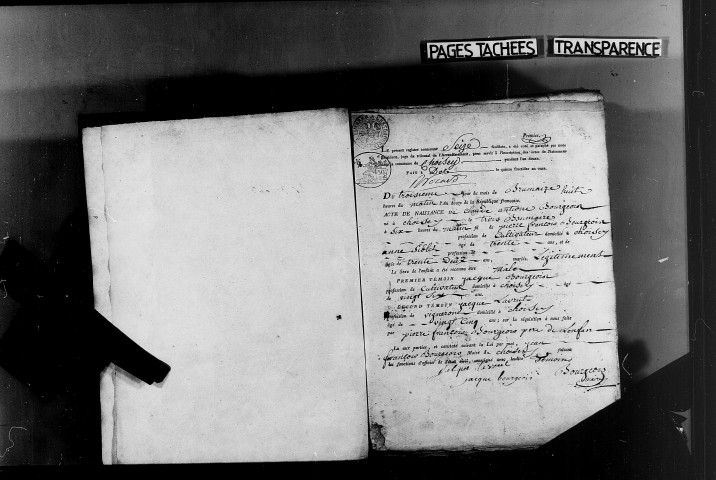 PAGES TACHEES TRANSPARENCE
Premier.
Le présent registre contenant Seize feuillets, a été coté et paraphé par nous
juge du tribunal de l'Arrondissement, pour servir à l'inscription des actes de Naissance
commune de Choisey pendant l'an douze.
Fait à Dole le quinze fructidor an onze.
Du troisieme jour du mois de Brumaire huit
heures du matin l'an douze de la République française.
ACTE DE NAISSANCE de claude antoine Bourgeois
né à choisey le trois Brumaire
à six heures du matin fils de pierre françois Bourgeois
profession de Cultivateur domicilié à choisey
âgé de trente ans, et de
anne
âgée de trente Deux ans, mariés Légitimement
Le sexe de l'enfant a été reconnu être Male
PREMIER TÉMOIN jacque Bourgeois
profession de Cultivateur domicilié à choisey âgé
de vingt six ans.
SECOND TÉMOIN jacque
profession de vigneron domicilié à choisey
âgé de vingt Cinq ans; sur la réquisition à nous faite
par pierre françois Bourgeois pere de Lenfan
Lu aux parties, et constaté suivant la Loi par moi, jean
françois Bourgeois Maire de choisey faisant
les fonctions d'officier de l'état civil, soussigné avec lesdits témoins
Bourgeois
jacque bourgeois maire